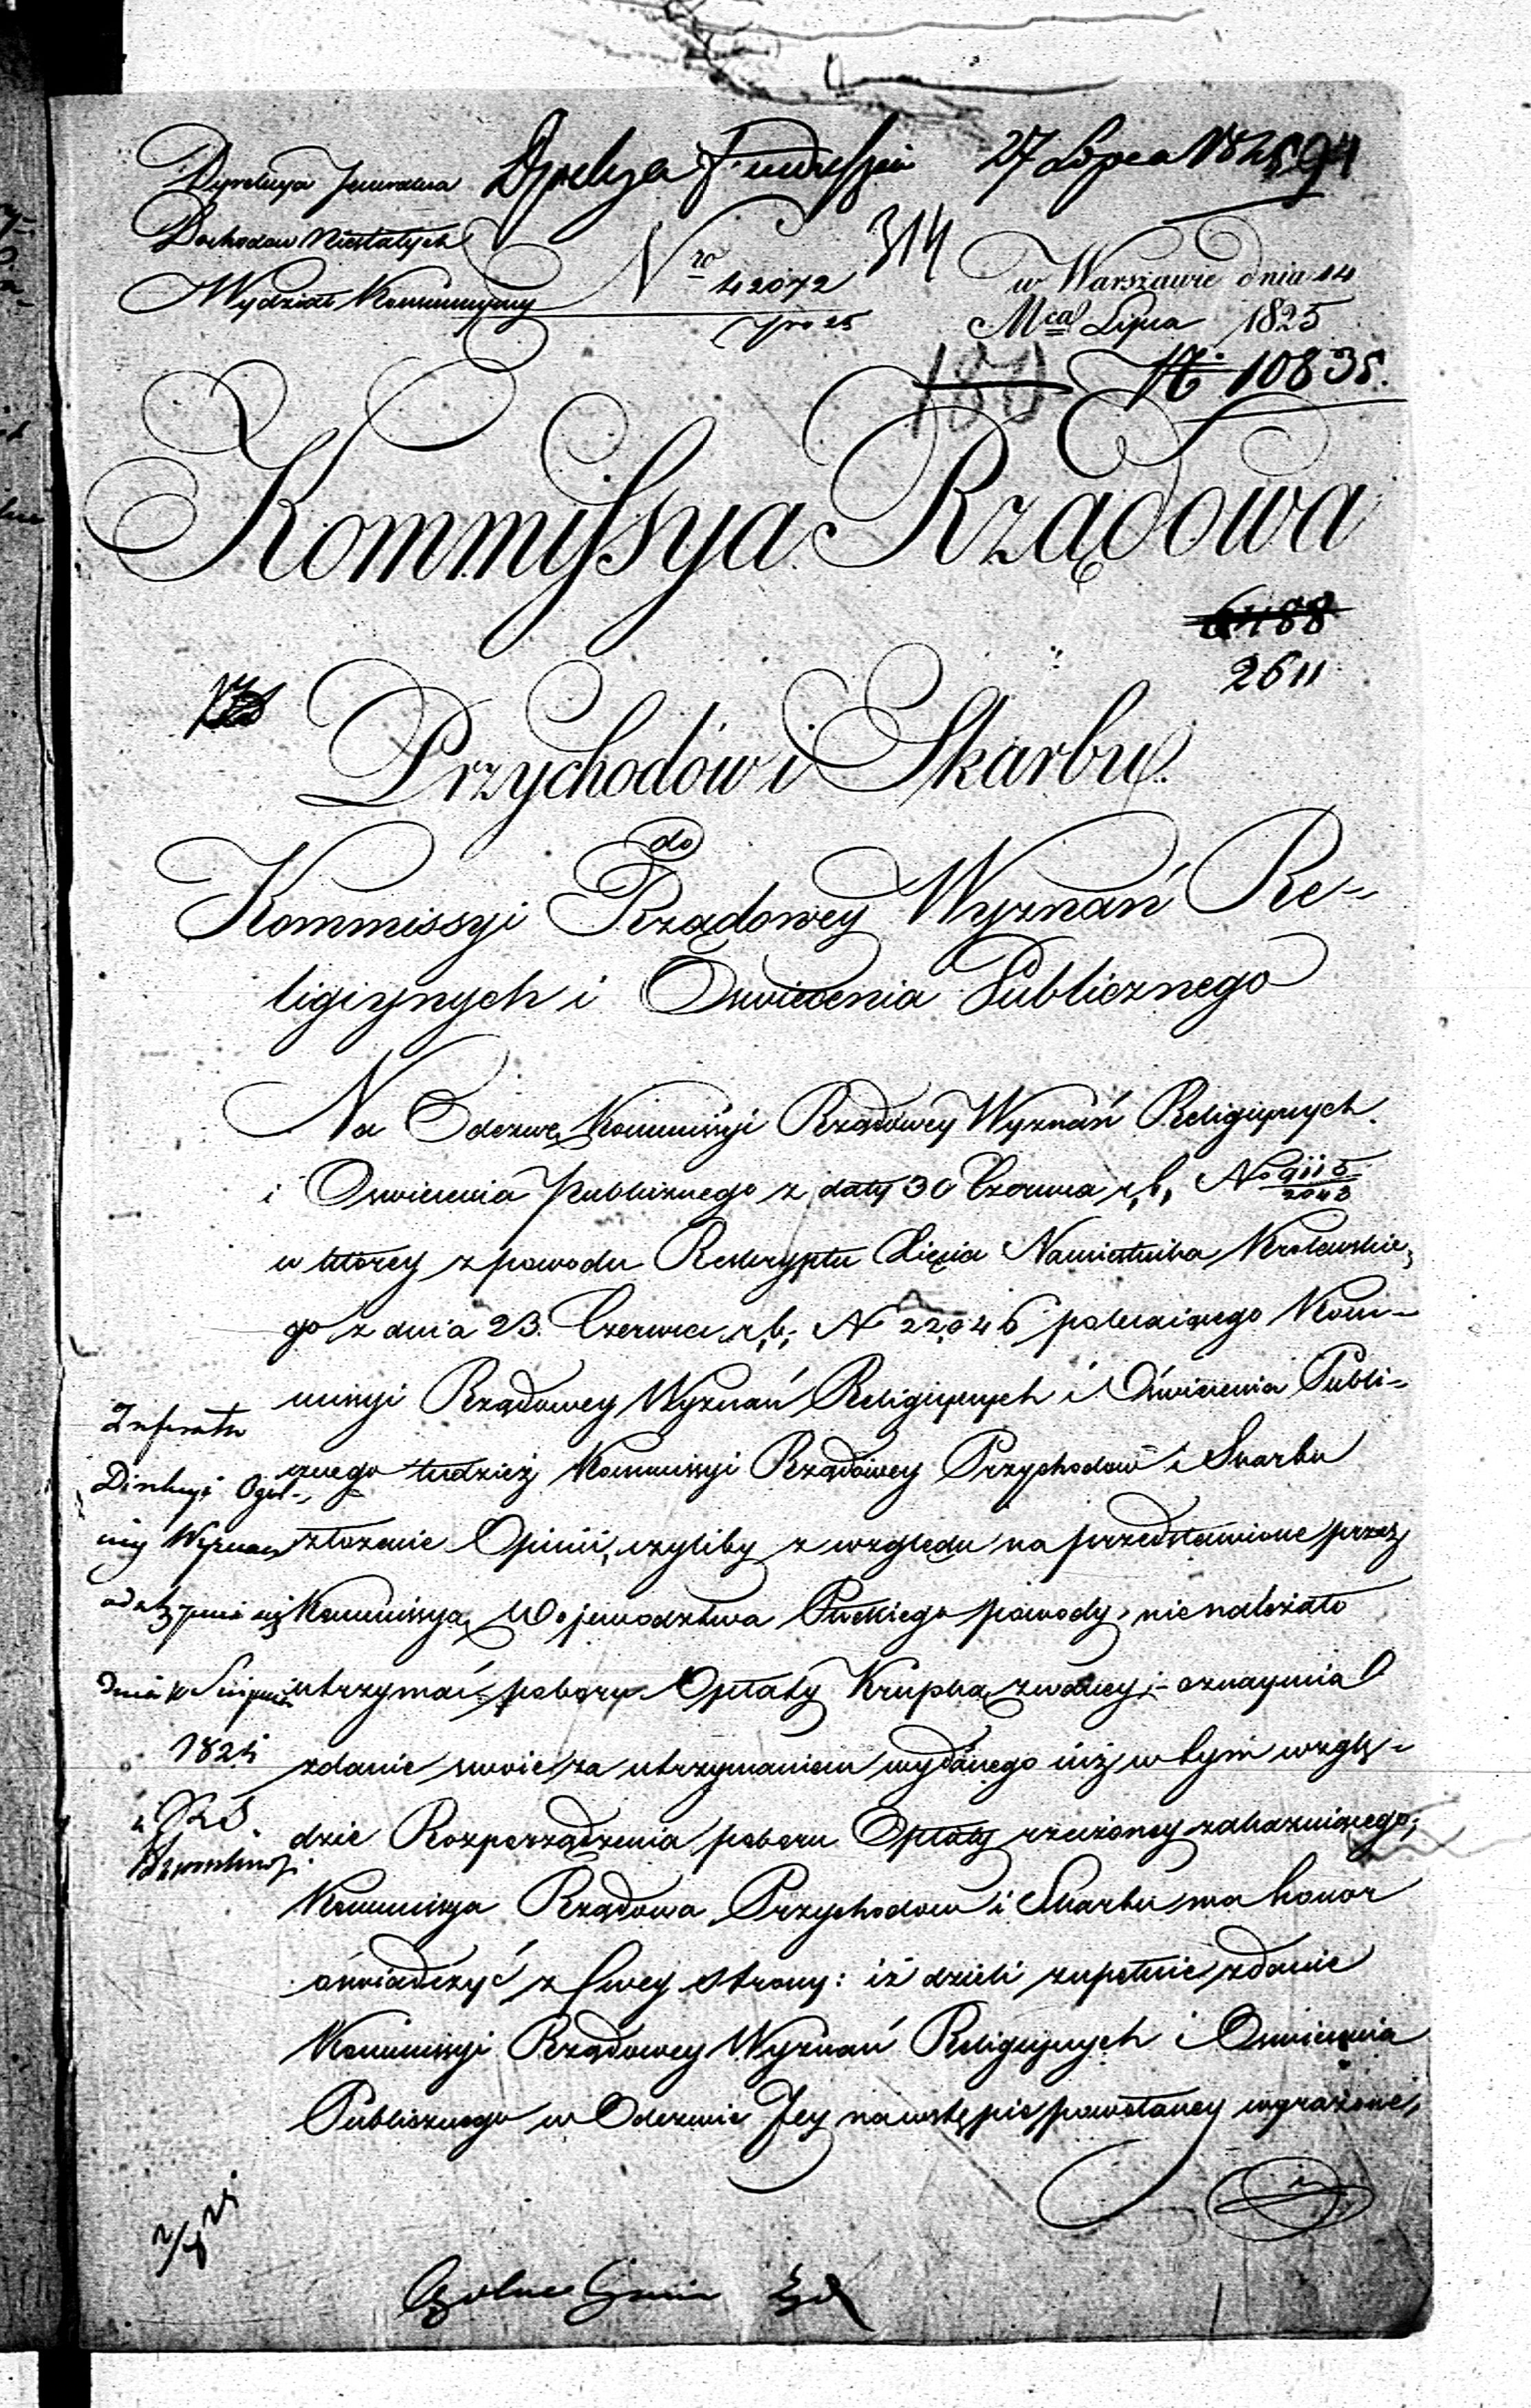 Dyrekcya Jeneralna
27 Lipca 1825 94
Dochodow Niestałych
Nro 42072 314
w Warszawie dnia 14
Wydział Konsumcyiny
Mca Lipca 1825
180 N. 10835.
Kommyssya Rządowa
6488
2611
Przychodów i Skarbu.
do
Kommissyi Rządowey Wyznań Re-
ligiynych i Oswiecenia Publicznego
Na Odezwę Kommissyi Rządowey Wyznań Religiynych
i Oswiecenia Publicznego z daty 30 Czerwca r, b, No 9115/2043
w ktorey z powodu Reskryptu Xięcia Namiestnika Krolewskie,
go z dnia 23. Czerwca r, b; N 22,046 polecaiącego Kom-
missyi Rządowey Wyznań Religiynych i Oświecenia Publi-
cznego tudzież Kommissyi Rządowey Przychodow i Skarbu
złozenie Opinii, czyliby z względu na przedstawione przez
Kommissyą Wojewodztwa Płockiego powody, nie nalezało
utrzymać poboru Opłaty Krupką zwaney;- oznaymia
zdanie swoie za utrzymaniem wydanego iuż w tym wzglę-
dzie Rozporządzenia poboru Opłaty rzeczoney zakazuiącego;
Kommissya Rządowa Przychodow i Skarbu ma honor
oświadczyć z swey strony: iż dzieli zupełnie zdanie
Kommissyi Rządowey Wyznań Religiynych i Oswiecenia
Publicznego w Odezwie Jey na wstępie powołaney wyrażone,
Direkcyi Ogol-
ney Wyznan
dnia
1825